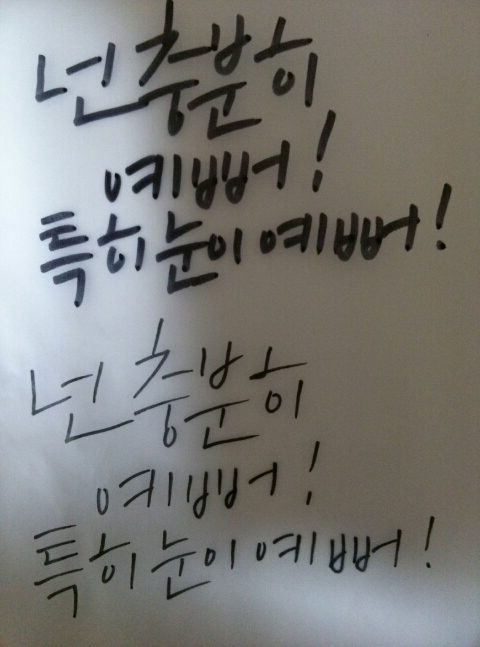 넌 충분히
예뻐!
특히 눈이 예뻐!
넌 충분히
예뻐!
특히 눈이 예뻐!